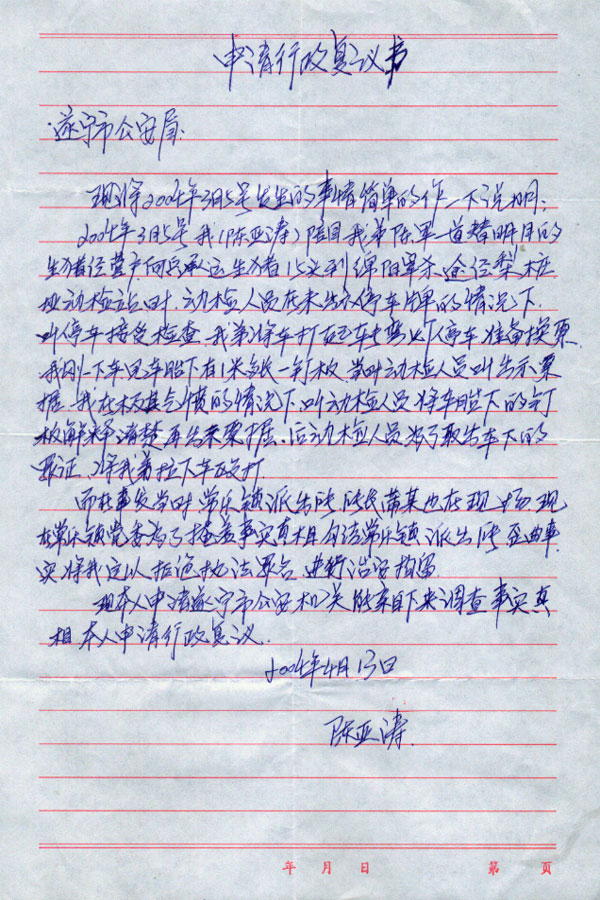 申请行政复议书
遂宁市公安局:
现将2004年3月5号发生的事情简单的作一下说明:
2004年3月5号我(陈亚涛)陪同我弟陈军一道替明月的
生猪经营户何兵承运生猪15头到绵阳宰杀、途经梨桠
动检站时 动检人员在未出示停车牌的情况下、
叫停车接受检查、我弟将车打在下停车准备换票
我刚一下车见车胎下在1米多长一钉板、当时动检人员叫出示票
据、我在极其气愤的情况下叫动检人员将车胎下的钉
板解释清楚再出示票据、后动检人员为了取出车下的
罪证、将我弟拉下车殴打
而在事发当时常乐镇派出所所长带某也在现场现
在常乐镇党委为了掩盖事实真相勾结常乐镇派出所歪曲事
实将我定以拒绝执法罪名、进行治安拘留
现本人申请遂宁市公安机关能亲自下来调查事实真
相 本人申请行政复议.
2004年4月13日
陈亚涛
年 月 日 第 页